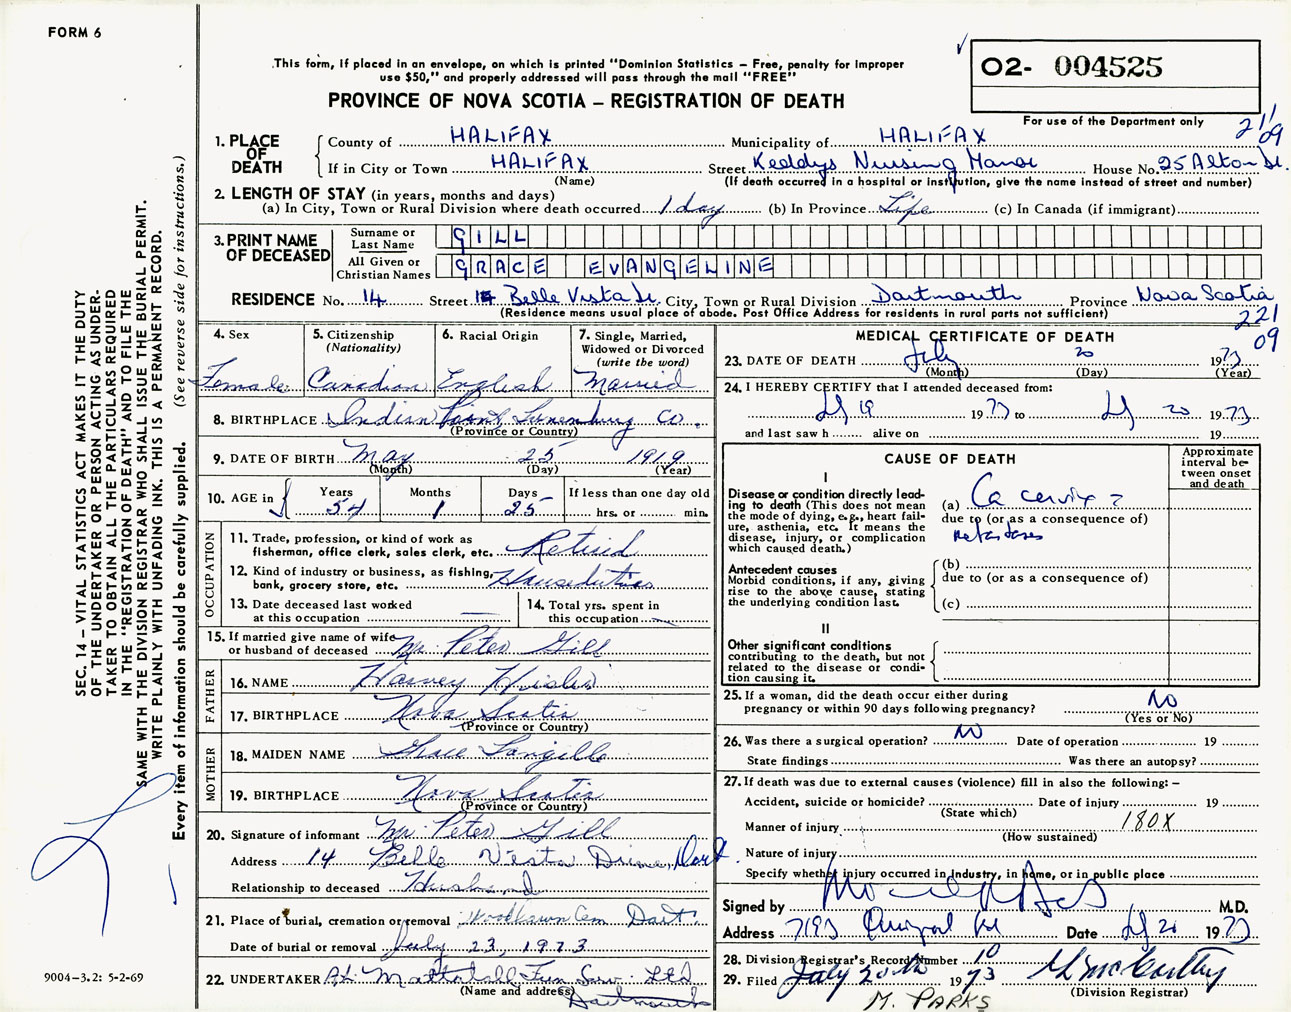 FORM 6
.This form, if placed in an envelope, on which is printed "Dominion Statistics – Free, penalty for improper
use $50," and properly addressed will pass through the mail "FREE"
O2- 004525
PROVINCE OF NOVA SCOTIA – REGISTRATION OF DEATH
For use of the Department only
21/09
1. PLACE OF DEATH
County of HALIFAX Municipality of HALIFAX
If in City or Town HALIFAX Street Keddys Nursing Manor House No. 25 Alton St.
(Name) (If death occurred in a hospital or institution, give the name instead of street and number)
2. LENGTH OF STAY (in years, months and days)
(a) In City, Town or Rural Division where death occurred 1 day (b) In Province Life (c) In Canada (if immigrant)
3. PRINT NAME OF DECEASED
Surname or Last Name GILL
All Given or Christian Names GRACE EVANGELINE
RESIDENCE No. 14 Street 14 Belle Vista Dr. City, Town or Rural Division Dartmouth Province Nova Scotia
(Residence means usual place of abode. Post Office Address for residents in rural parts not sufficient)
221
09
4. Sex Female
5. Citizenship (Nationality) Canadian
6. Racial Origin English
7. Single, Married, Widowed or Divorced (write the word) Married
8. BIRTHPLACE Indian Point, Lunenburg Co.
(Province or Country)
9. DATE OF BIRTH May 25 1919
(Month) (Day) (Year)
10. AGE in Years 54 Months 1 Days 25 If less than one day old hrs. or min.
OCCUPATION
11. Trade, profession, or kind of work as fisherman, office clerk, sales clerk, etc. Retired
12. Kind of industry or business, as fishing, bank, grocery store, etc. Houseduties
13. Date deceased last worked at this occupation
14. Total yrs. spent in this occupation
15. If married give name of wife or husband of deceased Mr. Peter Gill
FATHER
16. NAME Harvey Hisler
17. BIRTHPLACE Nova Scotia
(Province or Country)
MOTHER
18. MAIDEN NAME Grace Langille
19. BIRTHPLACE Nova Scotia
(Province or Country)
20. Signature of informant Mr. Peter Gill
Address 14 Belle Vista Drive, Dart.
Relationship to deceased Husband
21. Place of burial, cremation or removal Woodlawn Cem. Dart.
Date of burial or removal July 23, 1973
22. UNDERTAKER Mattatall Fun. Serv. Ltd
(Name and address) Dartmouth
MEDICAL CERTIFICATE OF DEATH
23. DATE OF DEATH July 20 1973
(Month) (Day) (Year)
24. I HEREBY CERTIFY that I attended deceased from:
Jly 19 1973 to Jly 20 1973
and last saw h alive on 19
CAUSE OF DEATH
Approximate interval between onset and death
I
Disease or condition directly leading to death (This does not mean the mode of dying, e.g., heart failure, asthenia, etc. It means the disease, injury, or complication which caused death.)
(a) Ca cervix
due to (or as a consequence of)
metastases
Antecedent causes
Morbid conditions, if any, giving rise to the above cause, stating the underlying condition last.
(b)
due to (or as a consequence of)
(c)
II
Other significant conditions
contributing to the death, but not related to the disease or condition causing it.
25. If a woman, did the death occur either during pregnancy or within 90 days following pregnancy? No
(Yes or No)
26. Was there a surgical operation? No Date of operation 19
State findings Was there an autopsy?
27. If death was due to external causes (violence) fill in also the following: –
Accident, suicide or homicide? Date of injury 19
(State which)
Manner of injury 180X
(How sustained)
Nature of injury
Specify whether injury occurred in industry, in home, or in public place
Signed by M.D.
Address Date Jly 20 1973
28. Division Registrar's Record Number 10
29. Filed July 20th 1973
(Division Registrar)
M. PARKS
SEC. 14 – VITAL STATISTICS ACT MAKES IT THE DUTY
OF THE UNDERTAKER OR PERSON ACTING AS UNDER-
TAKER TO OBTAIN ALL THE PARTICULARS REQUIRED
IN THE "REGISTRATION OF DEATH" AND TO FILE THE
SAME WITH THE DIVISION REGISTRAR WHO SHALL ISSUE THE BURIAL PERMIT.
WRITE PLAINLY WITH UNFADING INK. THIS IS A PERMANENT RECORD.
Every item of information should be carefully supplied. (See reverse side for instructions.)
9004-3.2: 5-2-69